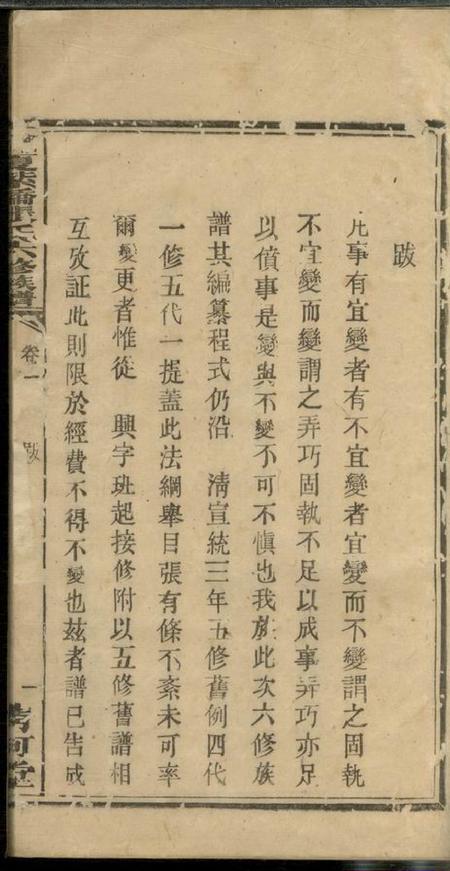 跋
凡事有宜變者有不宜變者宜變而不變謂之固執
不宜變而變謂之弄巧固執不足以成事弄巧亦足
以僨事是變與不變不可不慎也我族此次六修族
譜其編纂程式仍沿 清宣統三年五修舊例四代
一修五代一提蓋此法綱舉目張有條不紊未可率
爾變更者惟從 興字班起接修附以五修舊譜相
互攷証此則限於經費不得不變也茲者譜已告成
六修族譜 卷一 跋 一